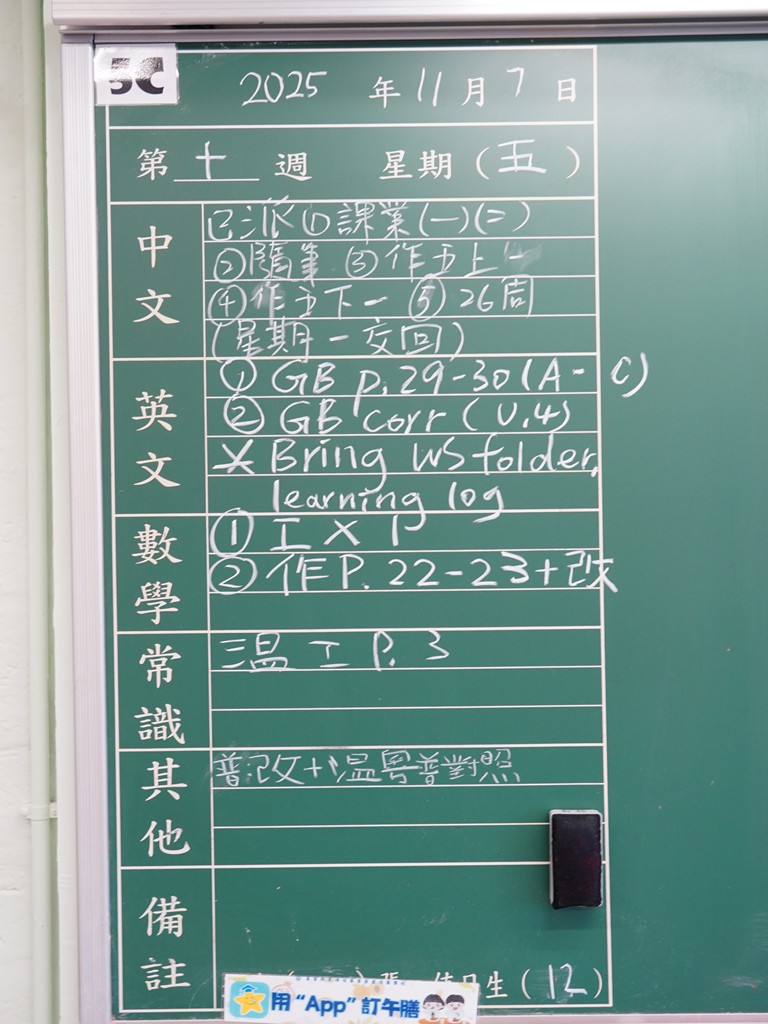 5C
2025 年 11 月 7 日
第 十 週 星期(五)
中文
已派①課業(一)(二)
②隨筆 ③作五上一
④作五下一 ⑤26周
(星期一交回)
英文
① GB p.29-30(A-C)
② GB corr (U.4)
* Bring WS folder,
learning log
數學
① 工 X P
② 作 P.22-23+改
常識
温工 P.3
其他
普改+温粵普對照
備註
值日生(12)
用“App”訂午膳